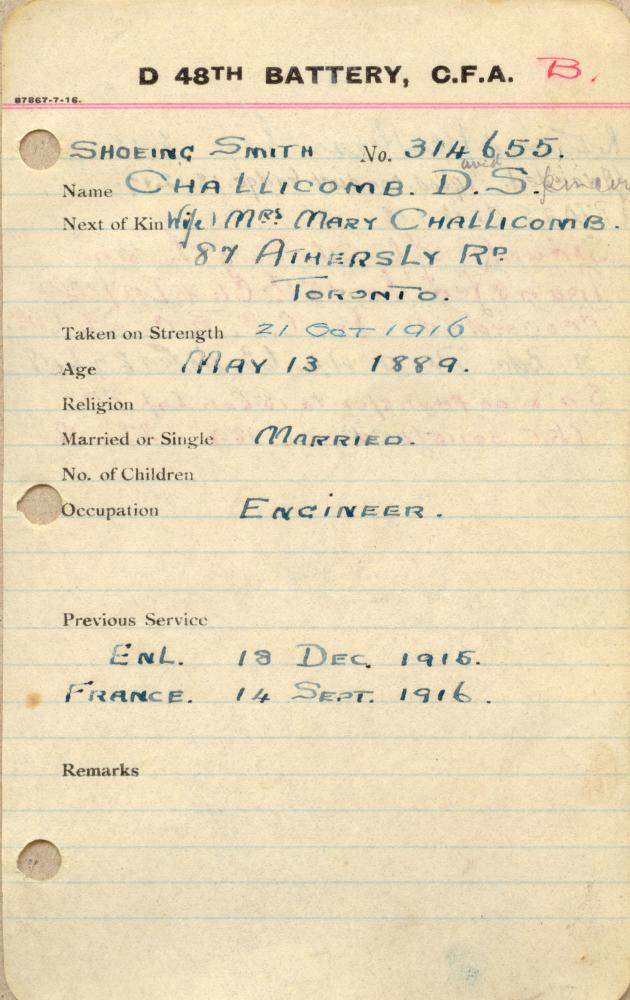 D 48TH BATTERY, C.F.A. B.
87867-7-16.
SHOEING SMITH No. 314655.
Name CHALLICOMB. D.avid S.
Next of Kin Wife) MRS MARY CHALLICOMB.
87 ATHERSLY RD
TORONTO.
Taken on Strength 21 OCT 1916
Age MAY 13 1889.
Religion
Married or Single MARRIED.
No. of Children
Occupation ENGINEER.
Previous Service
ENL. 18 DEC. 1915.
FRANCE. 14 SEPT. 1916.
Remarks